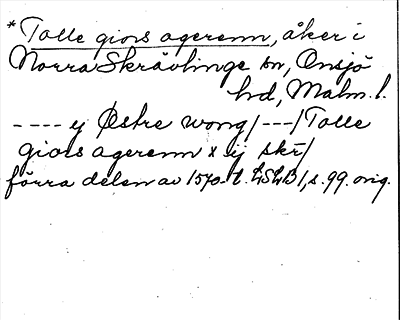 *Tolle giors agerenn, åker i
Norra Skrävlinge sn, Onsjö
hd, Malm. l.
---- y Østre wong/---/Tolle
giors agerenn x ij skr/
förra delen av 1570-t. LSLB 1, s. 99. orig.